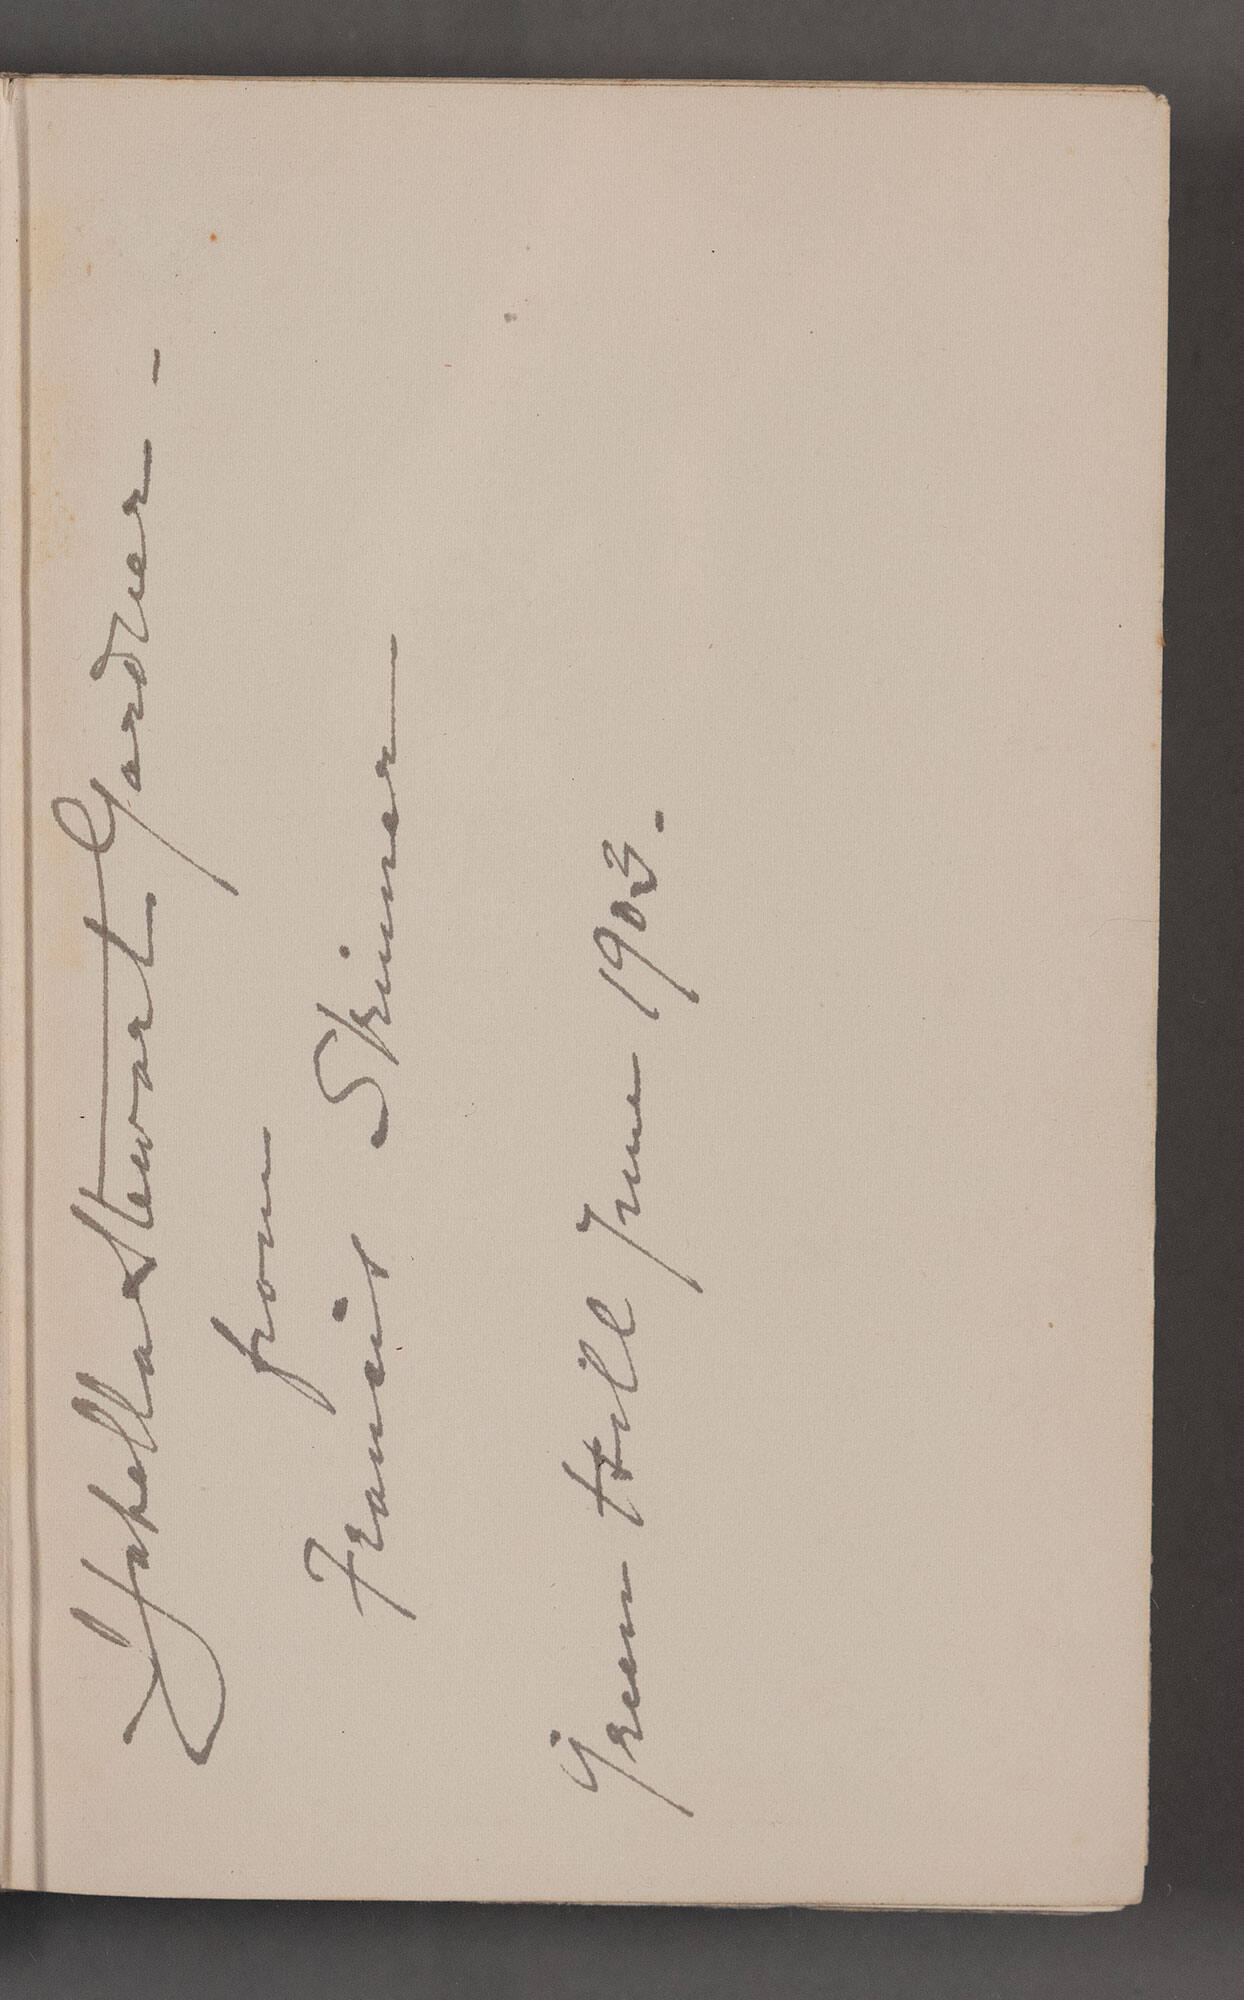 Isabella Stewart Gardner –
from
Francis Skinner
Green Hill June 1903.